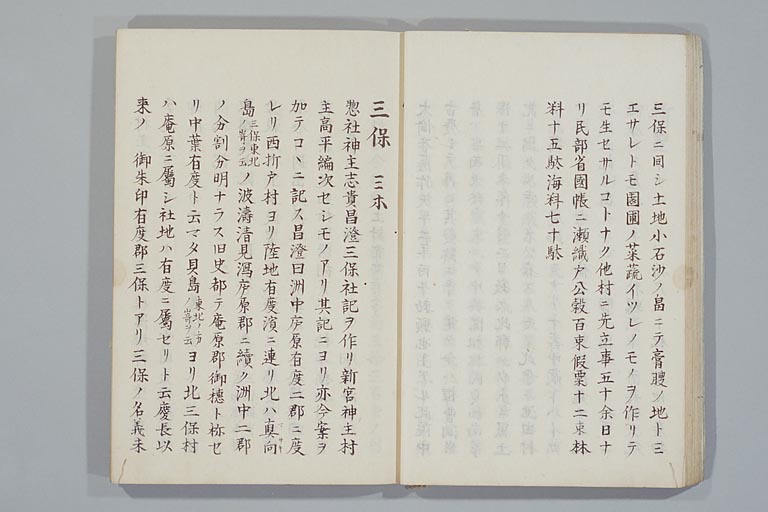 三保ニ同シ土地小石沙ノ畠ニテ膏腴ノ地トミ
エサレトモ園圃ノ菜蔬イツレノモノヲ作リテ
モ生セサルコトナク他村ニ先立事五十余日ナ
リ民部省國帳ニ瀬織戸公穀百束假粟十二束林
料十五駄海料七十駄
三保 ミホ
惣社神主志貴昌澄三保社記ヲ作リ新宮神主村
主高平編次セシモノアリ其記ニヨリ亦今案ヲ
加テコヽニ記ス昌澄曰洲中庐原有度二郡ニ度
レリ西折戸村ヨリ陸地有度濱ニ連リ北ハ真向
島三保東北ノ嵜ヲ云ノ波濤清見潟庐原郡ニ續ク洲中二郡
ノ分割分明ナラス旧史都テ庵原郡御穗ト称セ
リ中葉有度ト云マタ貝島東北ノ方ノ嵜ヲ云ヨリ北三保村
ハ庵原ニ屬シ社地ハ有度ニ屬セリト云慶長以
来ノ御朱印有度郡三保トアリ三保ノ名義未